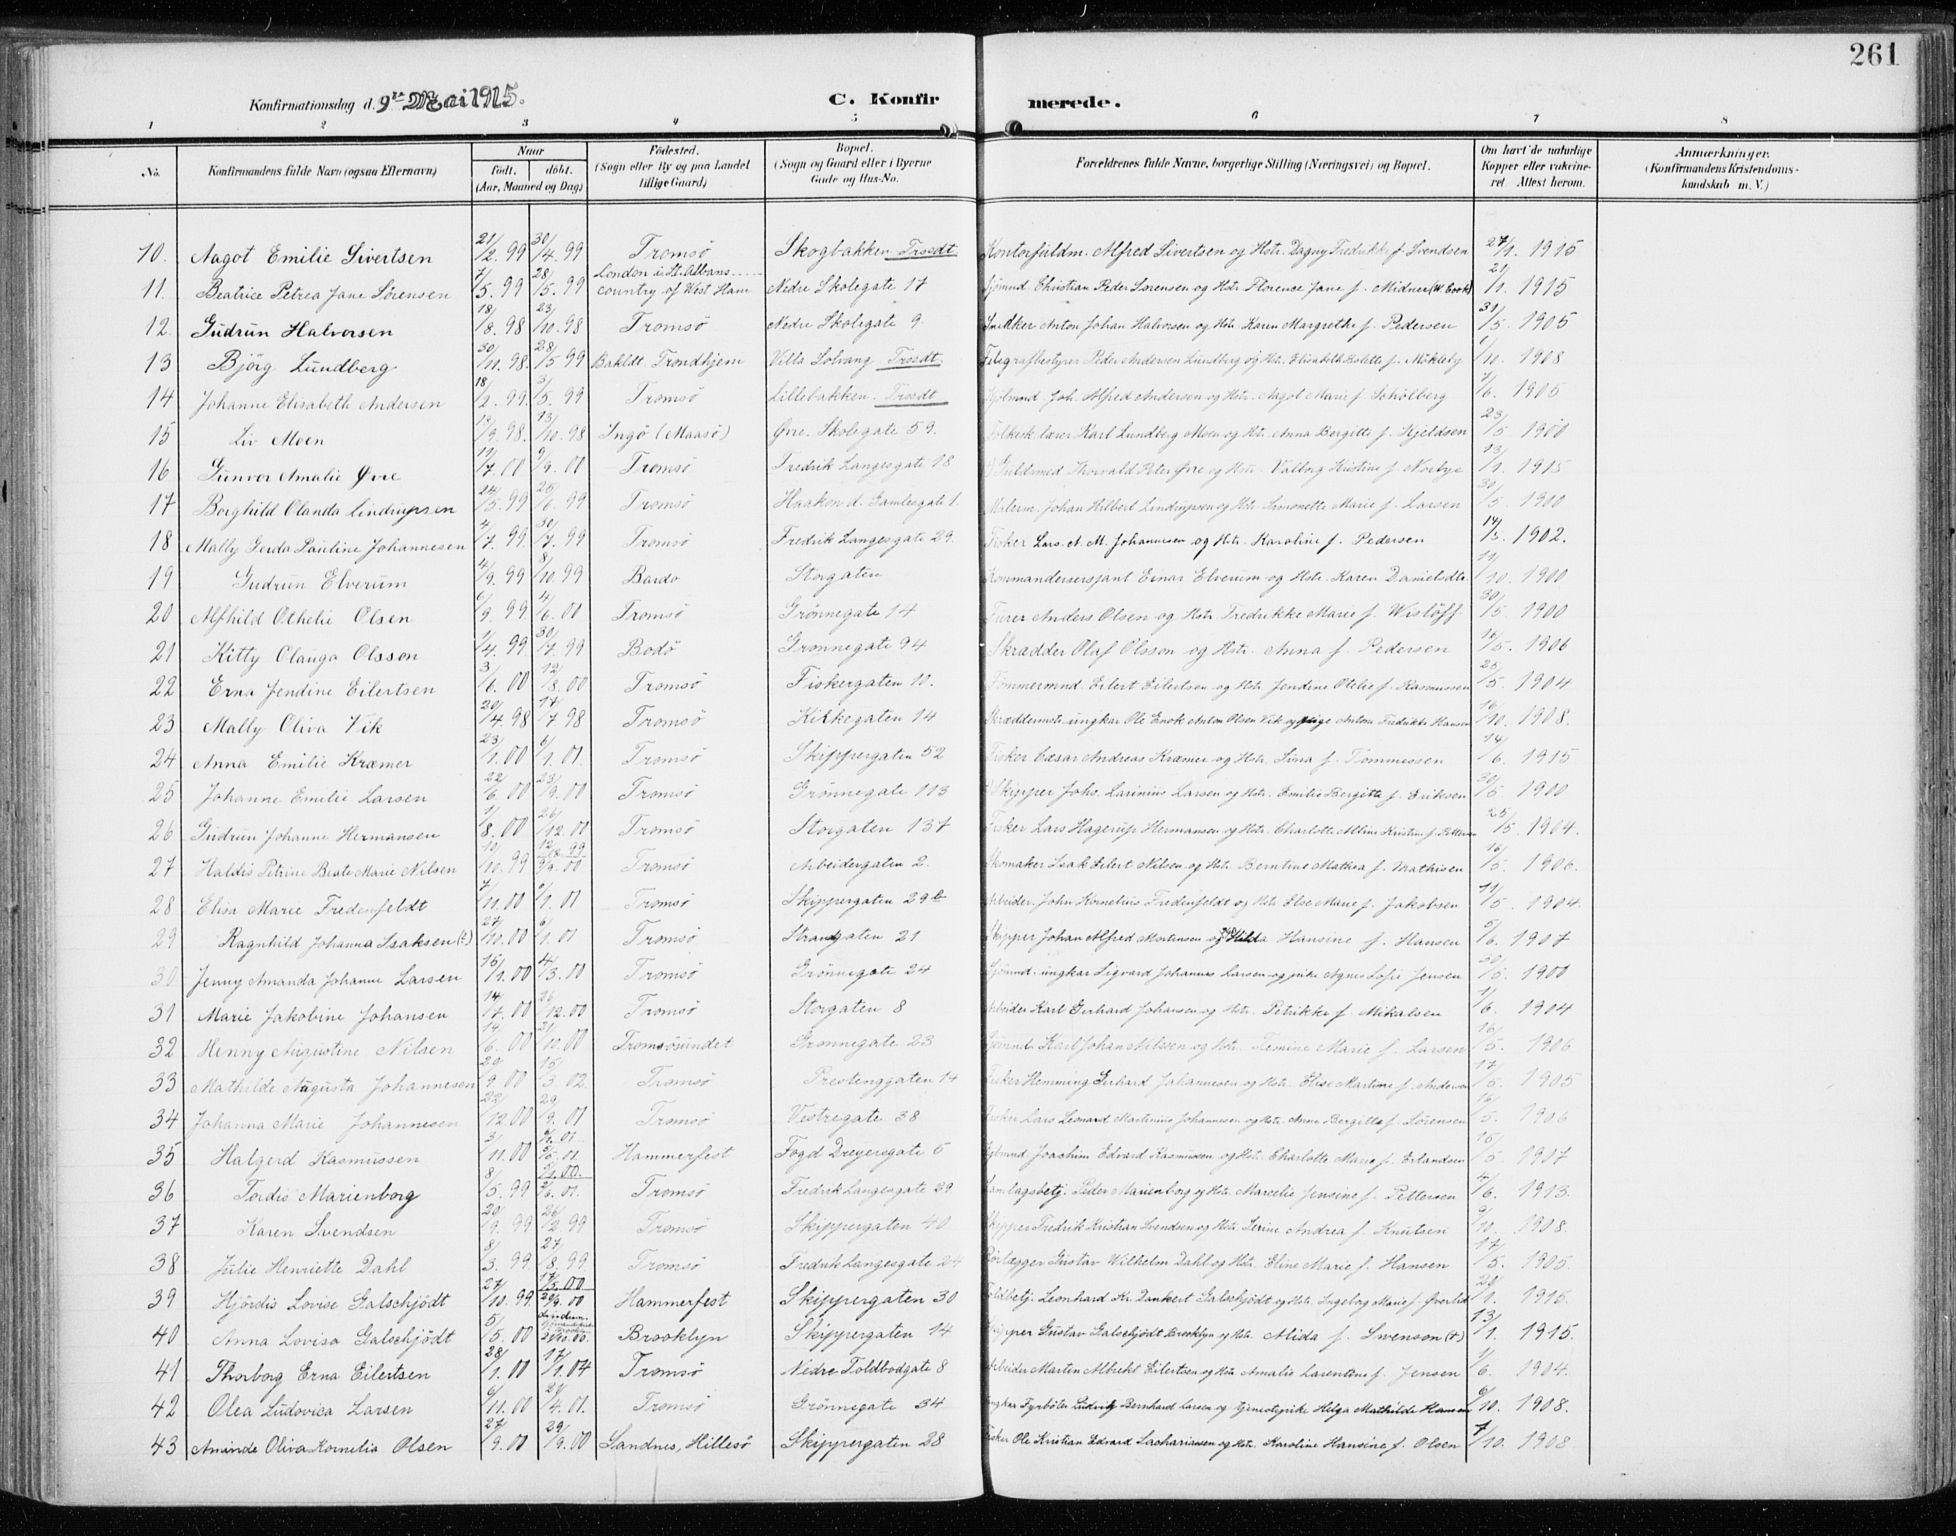 261
Konfirmationsdag d. 9de Mai 1915.
C. Konfirmerede.
1 2 3 4 5 6 7 8
No. Konfirmandens fulde Navn (ogsaa Efternavn) Naar født. døbt. (Aar, Maaned og Dag) Fødested. (Sogn eller By og paa Landet tillige Gaard) Bopæl. (Sogn og Gaard eller i Byerne Gade og Hus-No. Forældrenes fulde Navne, borgerlige Stilling (Næringsvei) og Bopæl. Om havt de naturlige Kopper eller vakcineret. Attest herom. Anmærkninger. (Konfirmandens Kristendomskundskab m. V.)
10. Aagot Emilie Sivertsen 21/2.99 30/4.99 Tromsö Skogbakken Trosdt Kontorfuldm. Alfred Sivertsen og Hstr. Dagny Fredrikke f. Svendsen 27/1 1915
11. Beatrice Petrea Jane Sörensen 7/5.99 28/5.99 London i St. Albans country of West Ham Nedre Skolegate 17 Sjömnd Christian Peder Sörensen og Hstr Florence Jane f. Midner (W. Cook) 21/1 1915
12. Gudrun Halvorsen 18/8.98 23/10.98 Tromsö Nedre Skolegate 9 Snedker Anton Johan Halvorsen og Hstr Karen Margrethe f. Pedersen 31/5. 1905
13 Björg Lundberg 30/11.98. 28/5 99 Bakldt. Trondhjem Villa Solvang Trosdt. Telegrafbestyrer Peder Andersen Lundberg og Hstr. Elisabeth Bolette f. Mükleby 1/10. 1908
14 Johanne Elisabeth Andersen 18/2.99. 3/5.99 Tromsö Lillebakken. Trosdt Joh. Alfred Andersen og Hstr. Aagot Marie f. Schölberg 7/6. 1905
15 Liv Moen 12/9.98. 13/10.98 Ingö (Maasö) Øvre. Skolegate 59. Folkesk.lærer Karl Lundberg Moen og Hstr. Anna Bergitte f. Kjeldsen 23/5 1900
16 Gunvor Amalie Øvre 19/7.00 9/9.00 Tromsö Fredrik Langesgate 18 Guldsmed Thorvald Peter Øvre og Hstr. Valborg Kristine f. Norbye 13/1. 1915
17 Borghild Olanda Lindrupsen 24/5.99 25/6.99 Tromsö Haakon d. Gamlesgate 1. Malerm. Johan Hilbert Lindrupsen og Hstr. Simonette Marie f. Larsen 30/5 1900
18 Mally Gerda Pauline Johannesen 4/7.99. 30/7.99 Tromsö Fredrik Langesgate 29. Fisker Lars. A. M. Johannesen og Hstr. Karoline f. Pedersen 14/5. 1902.
19 Gudrun Elverum 4/9.99 8/10.99 Bardo Storgaten Kommandersersjant Einar Elverum og Hstr. Karen Danielsdtr. 11/10. 1900
20 Alfhild Othelie Olsen 6/9.99 4/6.00 Tromsö Grönnegate 14 Anders Olsen og Hstr Fredrikke Marie f. Wislöff 30/5. 1900
21 Kitty Olauga Olsson 1/4.99. 30/7.99 Bodö Grönnegate 94 Skrædder Olaf Olsson og Hstr. Anna f. Pedersen 16/5. 1906
22 Erna Jendine Eilertsen 3/6.00 12/8.00 Tromsö Fiskergaten 10. Tömmermnd. Eilert Eilertsen og Hstr. Jendine Otelie f. Rasmussen 25/5. 1904
23 Mally Oliva Vik 20/4.98 17/7.98 Tromsö Kirkegaten 14 Skræddermstr. ungkar Ole Enok Anton Olsen Vik og pige Antona Fredrikke Hansen 16/10. 1908.
24 Anna Emilie Kræmer 23/1.00 6/1.01 Tromsö Skippergaten 52 Fisker Cæsar Andreas Kræmer og Hstr. Lina f. Tommessen 14/6. 1915
25 Johanne Emilie Larsen 22/6.00 23/9.00 Tromsö Grönnegate 113 Skipper Johs. Larinius Larsen og Hstr. Emilie Bergitte f. Eriksen 30/5. 1900
26 Gudrun Johanne Hermansen 1/8.00 26/12.00 Tromsö Storgaten 137 Fisker Lars Hagerup Hermansen og Hstr. Charlotte Albine Kristine f. Pettersen 25/5. 1904.
27 Haldis Petrine Beate Marie Nilsen 10/10.99 12/12.99 9/9.00 Tromsö Arbeidergaten 2. Skomaker Isak Eilert Nilsen og Hstr. Berntine Mathea f. Mathisen 16/5. 1906.
28 Elisa Marie Fredenfeldt 7/11.00 6/1.01 Tromsö Skippergaten 29b Arbeider. John Kornelius Fredenfeldt og Hstr Else Marie f. Jakobsen 11/5. 1904.
29 Ragnhild Johanna Isaksen (t) 27/10.00 6/1.01 Tromsö Strandgaten 21 Skipper Johan Alfred Mortensen og Hilda Hansine f. Hansen 5/6. 1907
30 Jenny Amanda Johanne Larsen 15/1.00 4/3.00 Tromsö Grönnegate 24 Sjömnd. ungkar Sigvard Johannes Larsen og pike Agnes Sofie Jensen 30/5. 1900
31 Marie Jakobine Johansen 14/7.00 26/12.00 Tromsö Storgaten 8 Arbeider Karl Gerhard Johansen og Hstr. Petrikke f. Mikalsen 1/6. 1904
32 Henny Augustine Nilsen 14/6.00 21/10.00 Tromsösundet Grönnegate 23 Sjömnd. Karl Johan Nilssen og Hstr. Temine Marie f. Larsen 16/5. 1906
33 Mathilde Augusta Johannesen 20/9.00 15/3.02. Tromsö Prestenggaten 14 Fisker Hemming Gerhard Johannesen og Hstr. Elise Martine f. Andersen 17/5. 1905
34 Johanna Marie Johannesen 22/12.00 29/9.01 Tromsö Vestregate 38 Fisker Lars Leonard Martinius Johannesen og Hstr. Anne Bergitte f. Sörensen 16/5. 1906
35 Halgerd Rasmussen 3/11.00 Hammerfest Fogd Dreyersgate 5 Joachim Edvard Rasmussen og Hstr. Charlotte Marie f. Erlandsen 15/5. 1907
36 Tordis Marienborg 8/5.99 Tromsö Fredrik Langesgate 29. Samlagsbetj. Peder Marienborg og Hstr. Marselie Jensine f. Pettersen 4/6. 1913.
37 Karen Svendsen 20/9.99 26/12.99 Tromsö Skippergaten 40 Skipper Fredrik Kristian Svendsen og Hstr. Serine Andrea f. Knutsen 9/10. 1908.
38 Julie Henriette Dahl 8/3.99. 27/8.99 Tromsö Fredrik Langesgate 24 Rörlægger Gustav Wilhelm Dahl og Hstr. Eline Marie f. Hansen 17/5. 1905.
39 Hjördis Lovise Galschjödt 27/10.99. 17/5.00 29/9.00 Hammerfest Skippergaten 30 Toldbetj. Leonhard Kr. Dankert Galschjödt og Hstr. Ingeborg Marie f. Øverlid 20/1. 1915.
40 Anna Lovisa Galschjödt 5/5.00 Brooklyn Skippergaten 14 Skipper Gustav Galschjödt Brooklyn og Hstr. Alida f. Svenson (t) 13/1. 1915.
41 Thorborg Erna Eilertsen 28/1.00 17/1.04 Tromsö Nedre Toldbodgate 8 Arbeider Marten Albrekt Eilertsen og Hstr Amalie Larentine f. Jensen 1/6. 1904.
42 Olea Ludovica Larsen 6/11.00 21/4.01. Tromsö Grönnegate 34 Ungkar Fyrböter Ludvig Bernhard Larsen og tjenestepike Helga Mathilde Hansen 6/10. 1908.
43 Aminde Oliva Kornelia Olsen 27/9.00 29/9.00 Sandnes, Hillesö Skippergaten 28 Fisker Ole Kristian Edvard Sachariassen og Hstr. Karoline Hansine f. Olsen 7/10. 1908